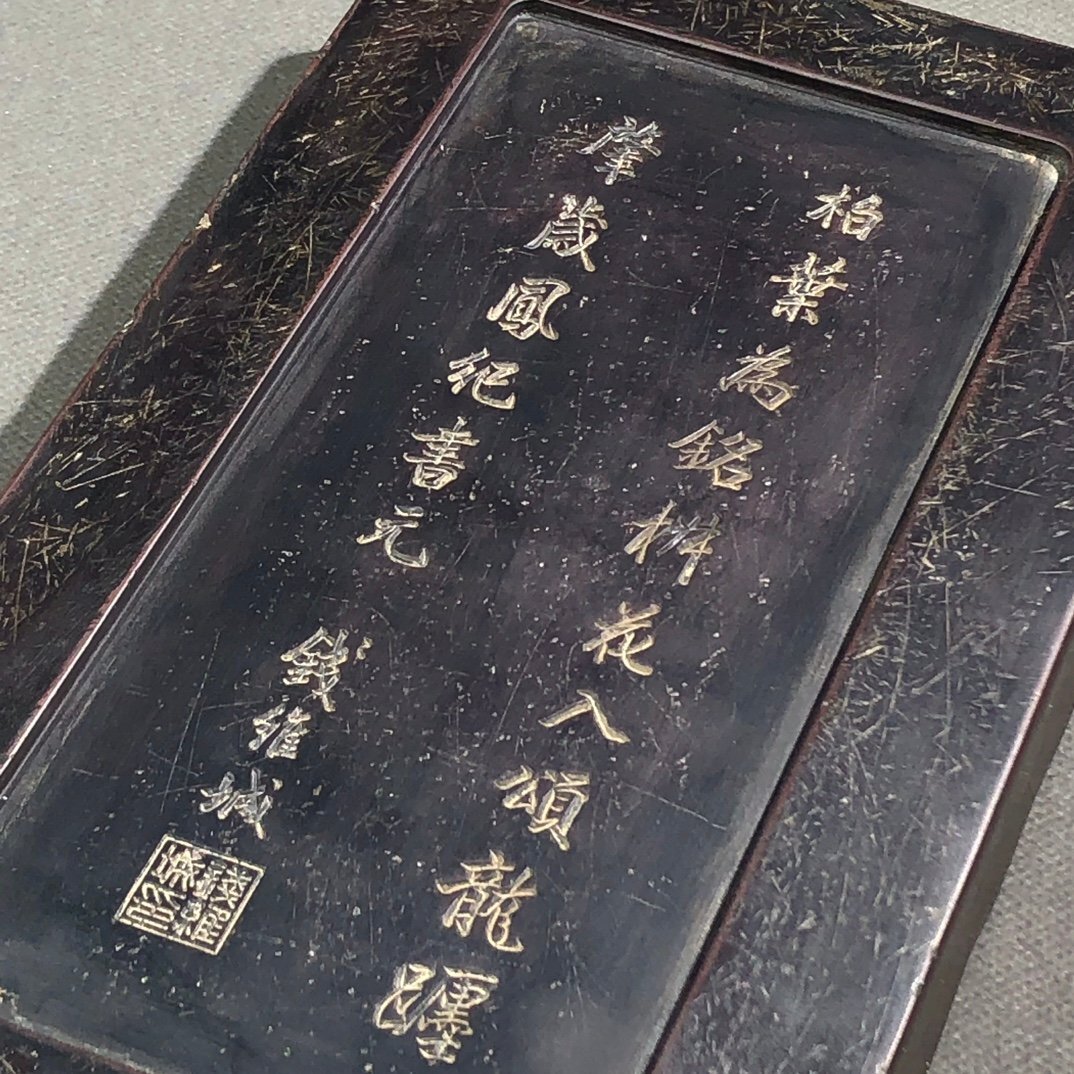 柏葉為銘椒花入頌龍躔
肇歲鳳紀書元
錢維城